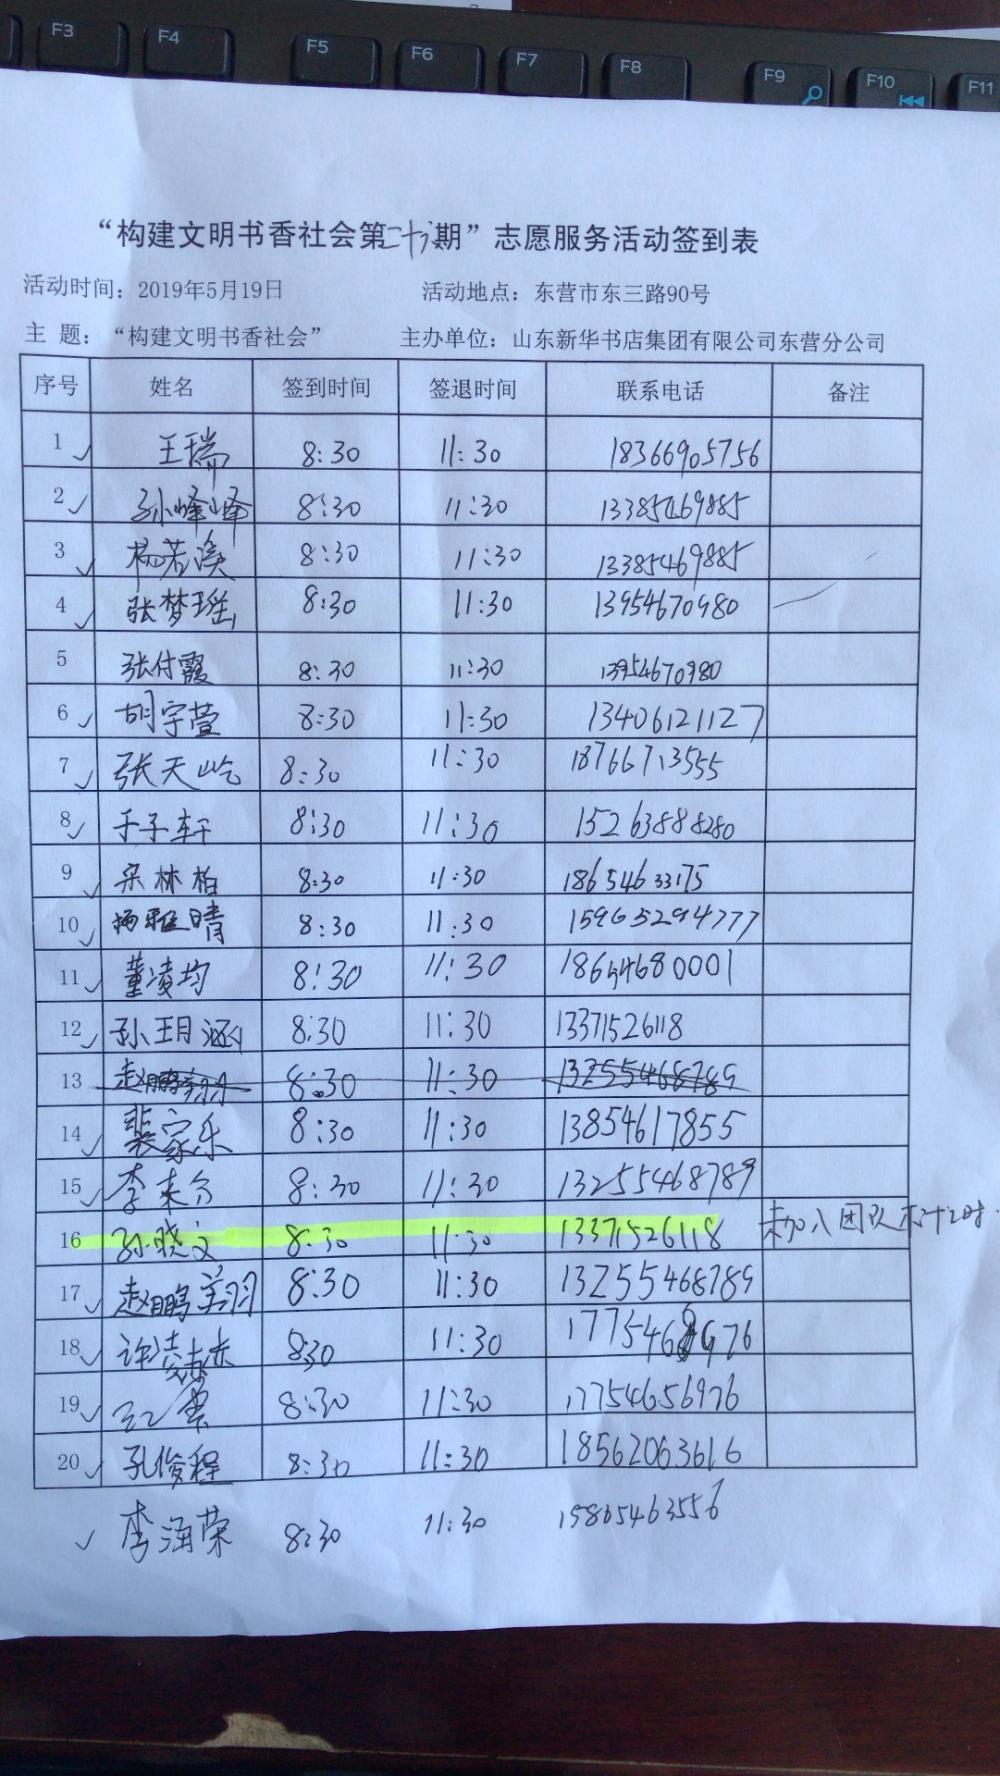 F3 F4 F5 F6 F7 F8 F9 F10 F11
“构建文明书香社会第二十六期”志愿服务活动签到表
活动时间：2019年5月19日 活动地点：东营市东三路90号
主 题：“构建文明书香社会” 主办单位：山东新华书店集团有限公司东营分公司
序号 姓名 签到时间 签退时间 联系电话 备注
1 王瑞 8:30 11:30 18366905756
2 孙峰峰 8:30 11:30 13385469885
3 杨若溪 8:30 11:30 13385469885
4 张梦瑶 8:30 11:30 13954670980
5 张付霞 8:30 11:30 13954670980
6 胡宇萱 8:30 11:30 13406121127
7 张天屹 8:30 11:30 18766713555
8 于子轩 8:30 11:30 15263888280
9 宋林柏 8:30 11:30 18654633175
10 杨雅晴 8:30 11:30 15965294777
11 董凌均 8:30 11:30 18654680001
12 孙玥涵 8:30 11:30 13371526118
13 赵鹏翔 8:30 11:30 13255468789
14 裴家乐 8:30 11:30 13854617855
15 李 8:30 11:30 13255468789
16 孙晓文 8:30 11:30 13371526118 未加入团队不计时
17 赵鹏翔 8:30 11:30 13255468789
18 许凌 8:30 11:30
19 8:30 11:30 17754656976
20 孔俊程 8:30 11:30 18562063616
李海荣 8:30 11:30 15865463556